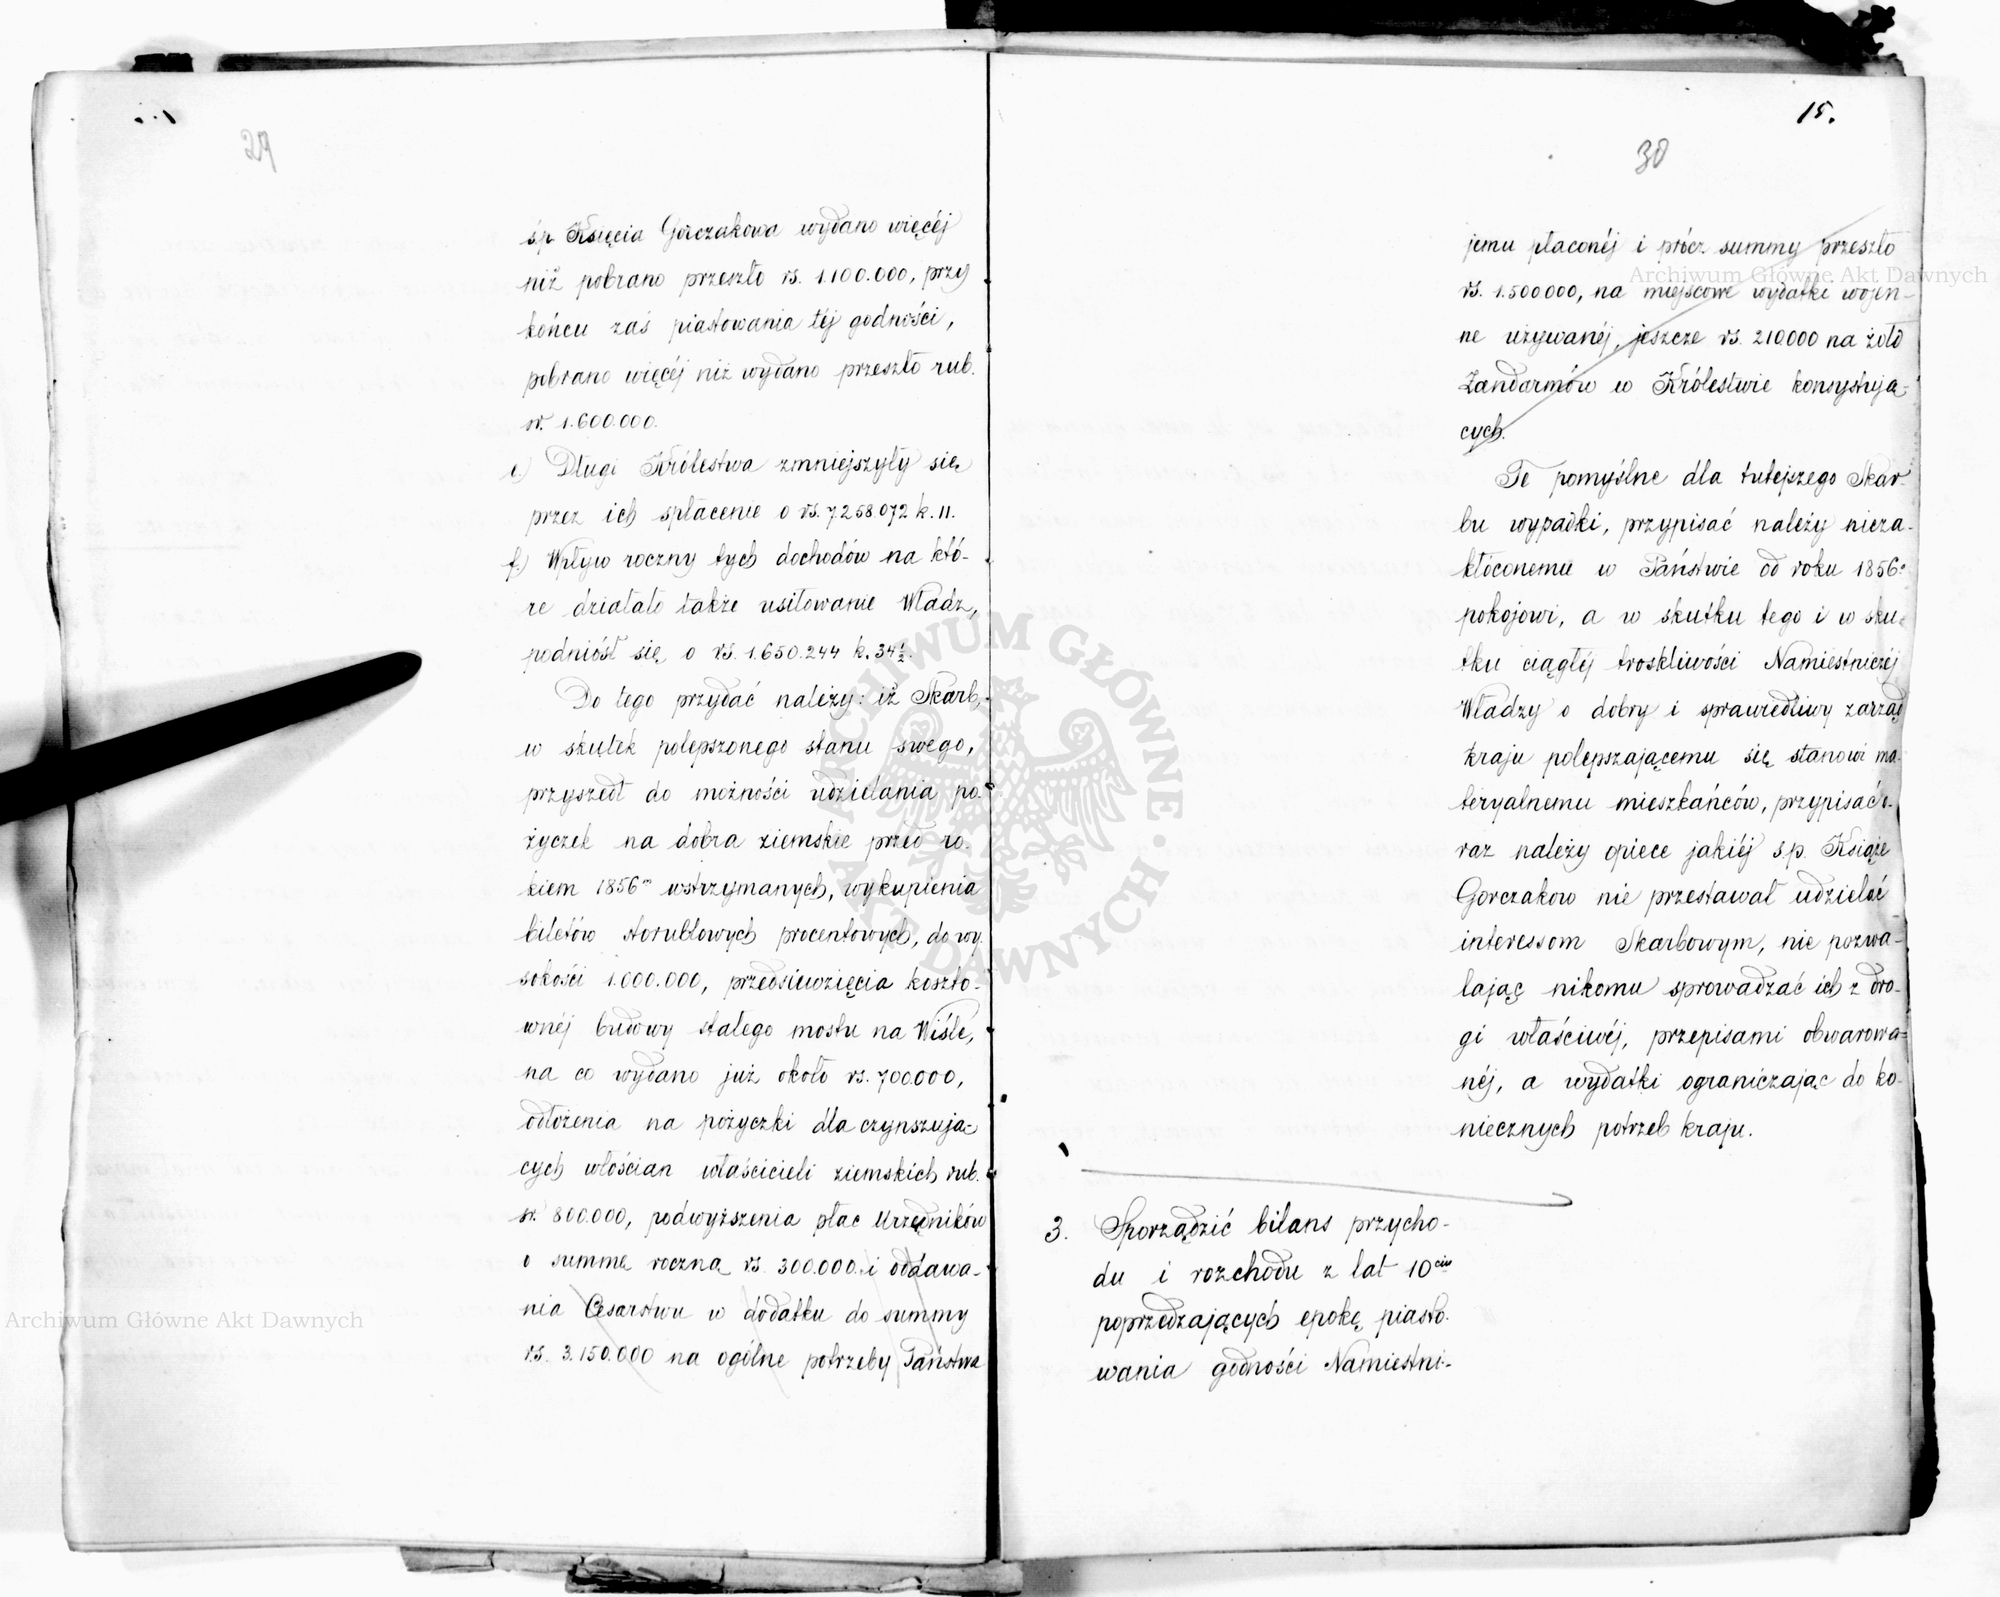 29
ś.p. Księcia Gorczakowa wydano więcéj
niż pobrano przeszło rs. 1.100.000, przy
końcu zaś piastowania téj godności,
pobrano więcéj niż wydano przeszło rub.
sr. 1.600.000.
e) Długi Królestwa zmniejszyły się
przez ich spłacenie o rs. 7.258.072 k. 11.
f.) Wpływ roczny tych dochodów na któ-
re działało także usiłowanie Władz,
podniósł się o rs. 1.650.244 k. 34½.
Do tego przydać należy: iż Skarb,
w skutek polepszonego stanu swego,
przyszedł do możności udzielania po-
życzek na dobra ziemskie przed ro-
kiem 1856m wstrzymanych, wykupienia
biletów storublowych procentowych, do wy-
sokości 1.000.000, przedsiewzięcia koszto-
wnéj budowy stałego mostu na Wiśle,
na co wydano już około rs. 700.000,
odłożenia na pożyczki dla czynszują-
cych włościan właścicieli ziemskich rub.
sr. 800.000, podwyższenia płac Urzędników
o summę roczną rs. 300.000. i oddawa-
nia Cesarstwu w dodatku do summy
rs. 3.150.000 na ogólne potrzeby Państwa
15.
30
jemu płaconéj i prócz summy przeszło
rs. 1.500000, na miejscowe wydatki wojen-
ne używanéj, jeszcze rs. 210.000 na żołd
Żandarmów w Królestwie konsystują-
cych.
Te pomyślne dla tutejszego Skar-
bu wypadki, przypisać należy nieza-
kłóconemu w Państwie od roku 1856o
pokojowi, a w skutku tego i w sku-
tku ciągłéj troskliwości Namiestniczéj
Władzy o dobry i sprawiedliwy zarząd
kraju polepszającemu się stanowi ma-
teryalnemu mieszkańców, przypisać o-
raz należy opiece jakiéj ś.p. Książe
Gorczakow nie przestawał udzielać
interessom Skarbowym, nie pozwa-
lając nikomu sprowadzać ich z dro-
gi właściwéj, przepisami obwarowa-
néj, a wydatki ograniczając do ko-
niecznych potrzeb kraju.
3. Sporządzić bilans przycho-
du i rozchodu z lat 10ciu
poprzedzających epokę piasto-
wania godności Namiestni-
Archiwum Główne Akt Dawnych
Archiwum Główne Akt Dawnych
ARCHIWUM GŁÓWNE AKT DAWNYCH